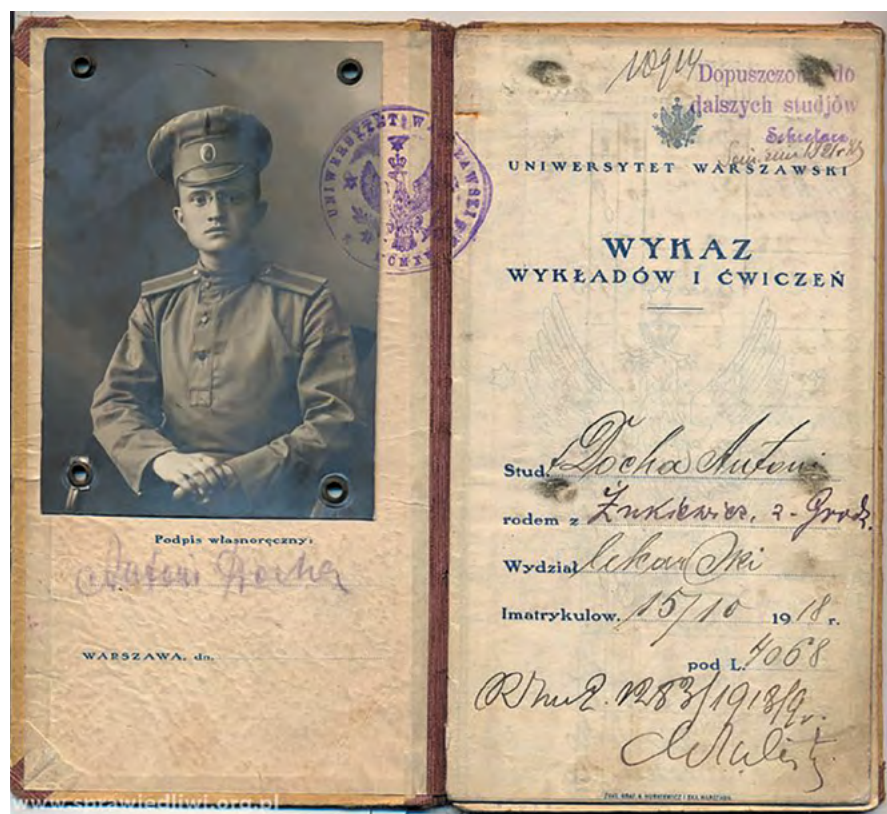 UNIWERSYTET WARSZAWSKI
Podpis własnoręczny:
Antoni Docha
WARSZAWA, dn.
www.sprawiedliwi.org.pl
Dopuszczony do
dalszych studjów
Sekretarz
UNIWERSYTET WARSZAWSKI
WYKAZ
WYKŁADÓW I ĆWICZEŃ
Stud. Docha Antoni
rodem z Żukiewicz, z. Grodz.
Wydział lekarski
Imatrykulow. 15/10 1918 r.
pod L. 4068
1283/1918/9r.